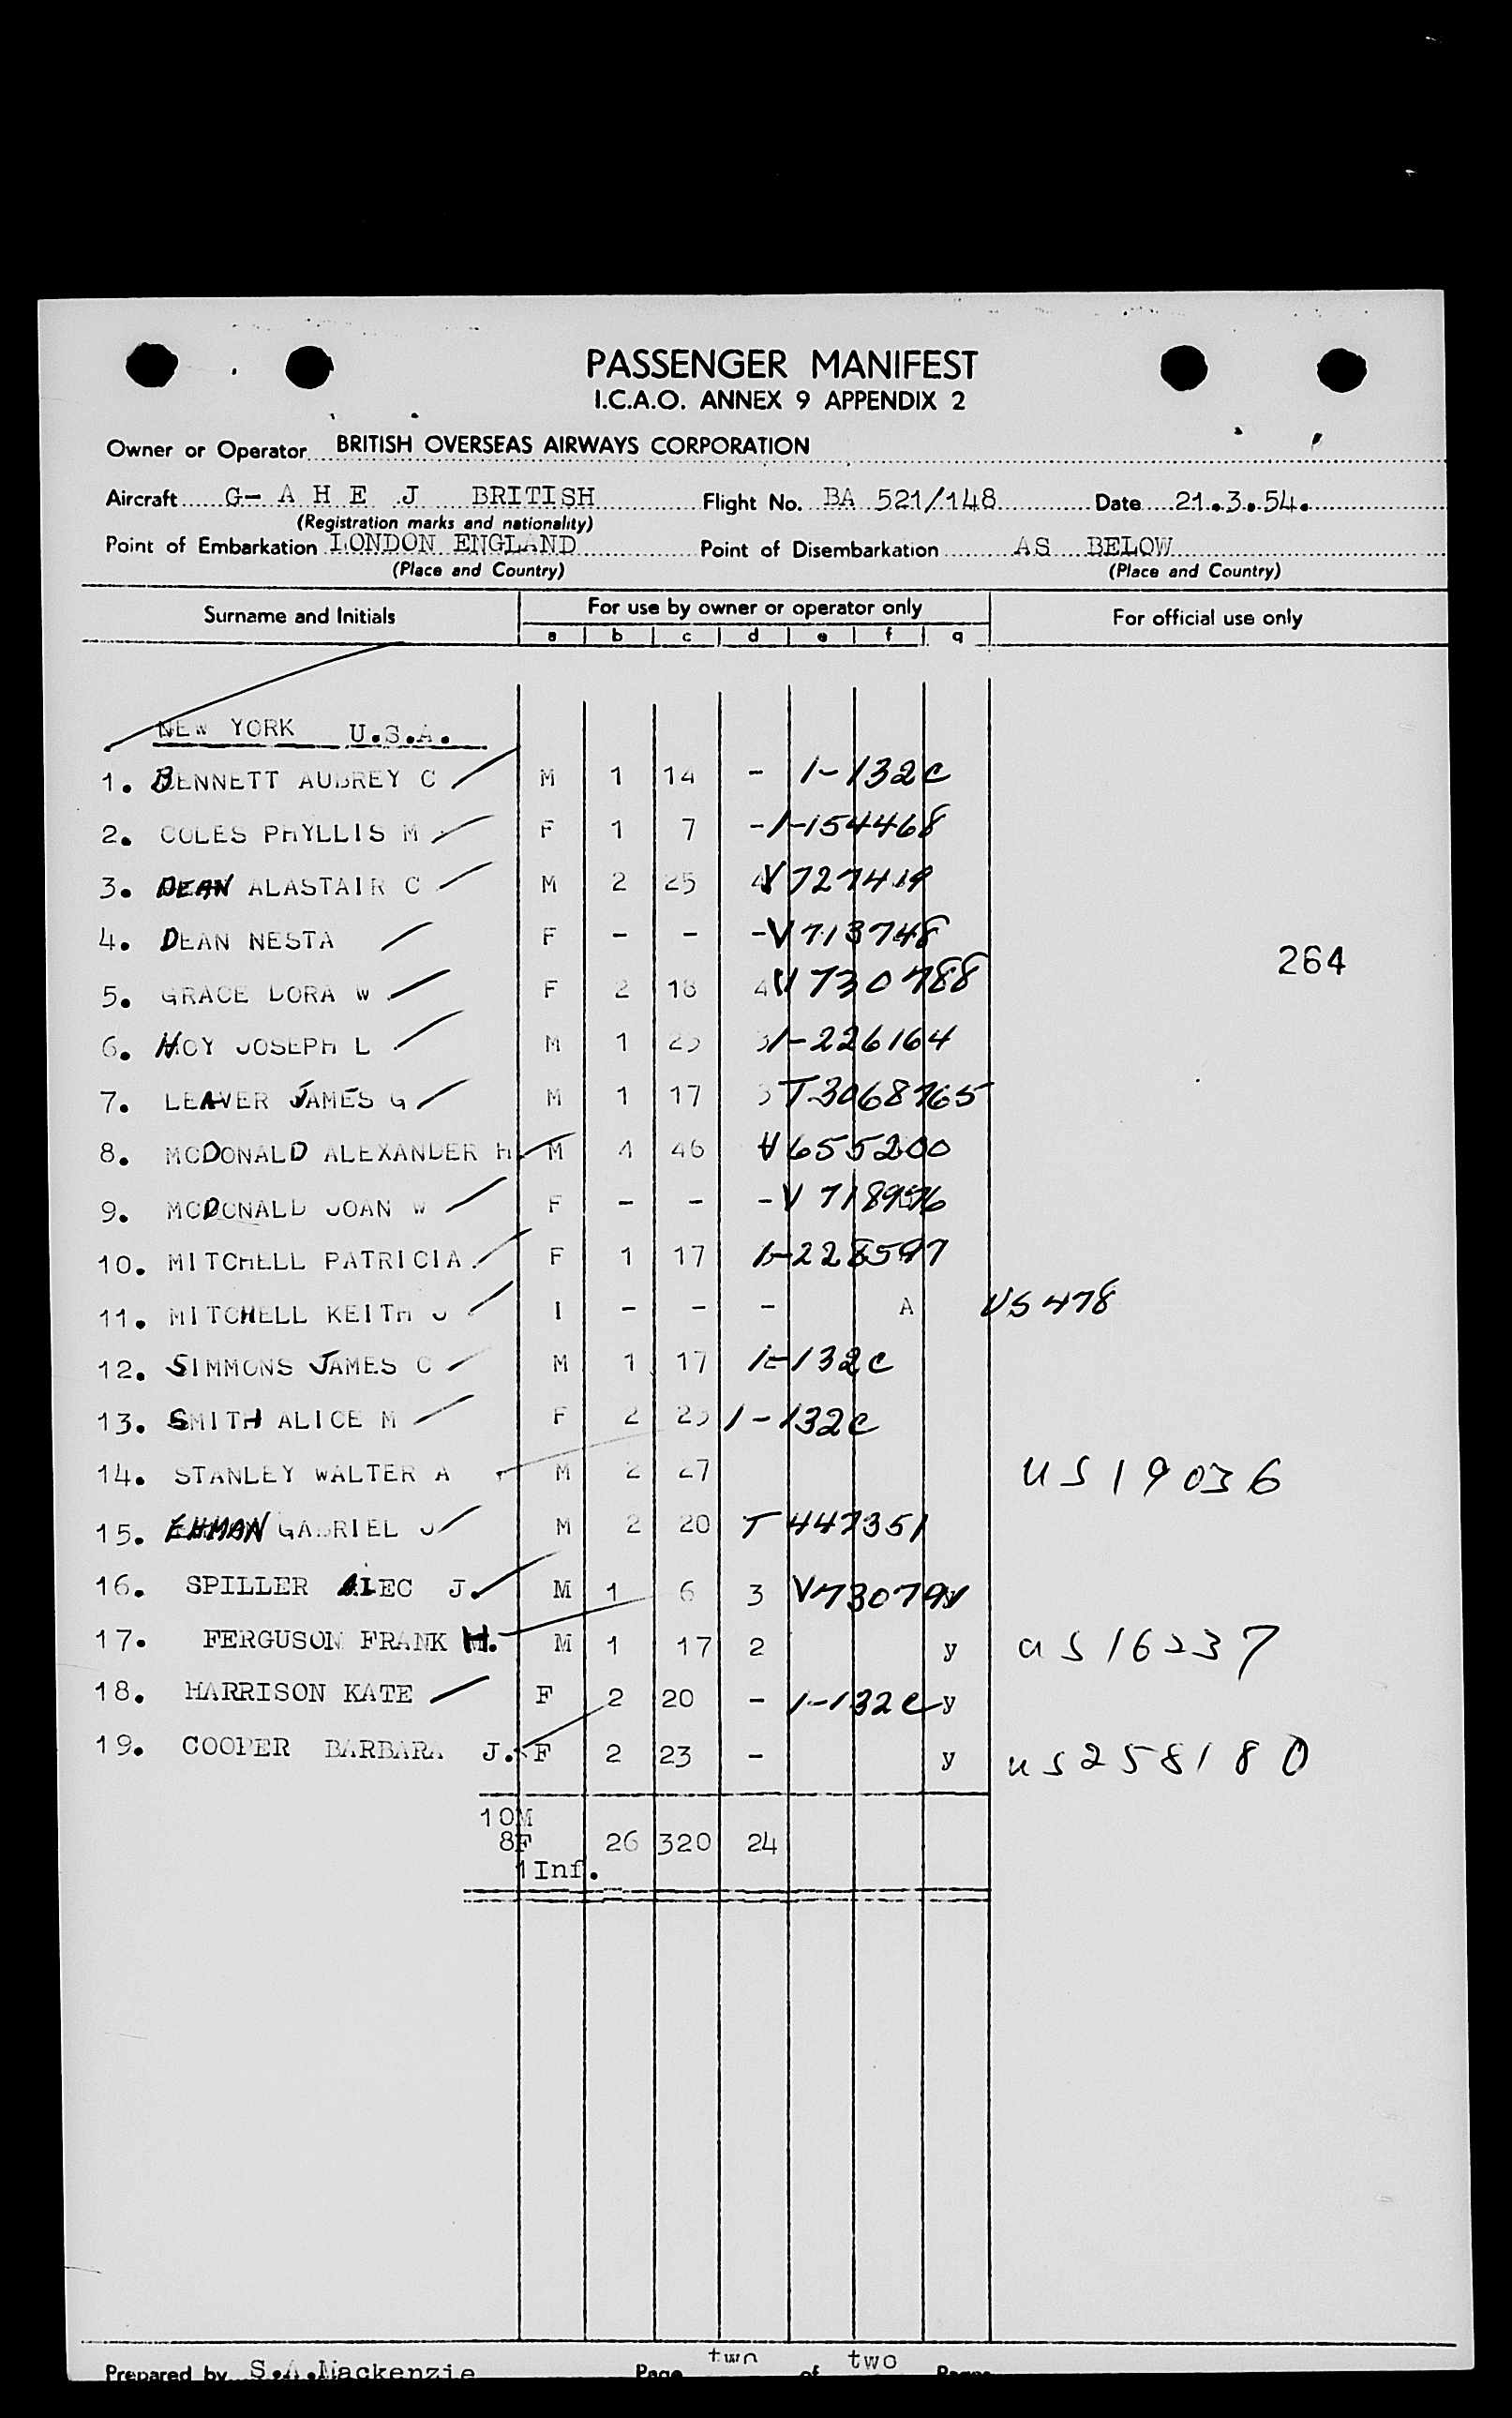 PASSENGER MANIFEST
I.C.A.O. ANNEX 9 APPENDIX 2
Owner or Operator BRITISH OVERSEAS AIRWAYS CORPORATION
Aircraft G- A H E J BRITISH Flight No. BA 521/148 Date 21.3.54.
(Registration marks and nationality)
Point of Embarkation LONDON ENGLAND Point of Disembarkation AS BELOW
(Place and Country) (Place and Country)
Surname and Initials For use by owner or operator only For official use only
a b c d e f g
NEW YORK U.S.A.
1. BENNETT AUBREY C M 1 14 - 1-132c
2. COLES PHYLLIS M F 1 7 - 1-154468
3. DEAN ALASTAIR C M 2 25 4 V727419
4. DEAN NESTA F - - - V713748
264
5. GRACE DORA W F 2 18 4 V730788
6. HOY JOSEPH L M 1 23 3 1-226164
7. LEAVER JAMES G M 1 17 3 T3068765
8. MCDONALD ALEXANDER H. M 4 46 V655200
9. MCDONALD JOAN W F - - - V718976
10. MITCHELL PATRICIA. F 1 17 1-228597
11. MITCHELL KEITH J I - - - A US478
12. SIMMONS JAMES C M 1 17 1-132c
13. SMITH ALICE M F 2 23 1-132c
14. STANLEY WALTER A M 2 27 US19036
15. EHMAN GABRIEL J M 2 20 T447351
16. SPILLER ALEC J. M 1 6 3 V730791
17. FERGUSON FRANK H. M 1 17 2 y US16237
18. HARRISON KATE F 2 20 - 1-132c y
19. COOPER BARBARA J. F 2 23 - y US258180
10M
8F 26 320 24
1Inf.
Prepared by S.A.Mackenzie Page two of two Pages